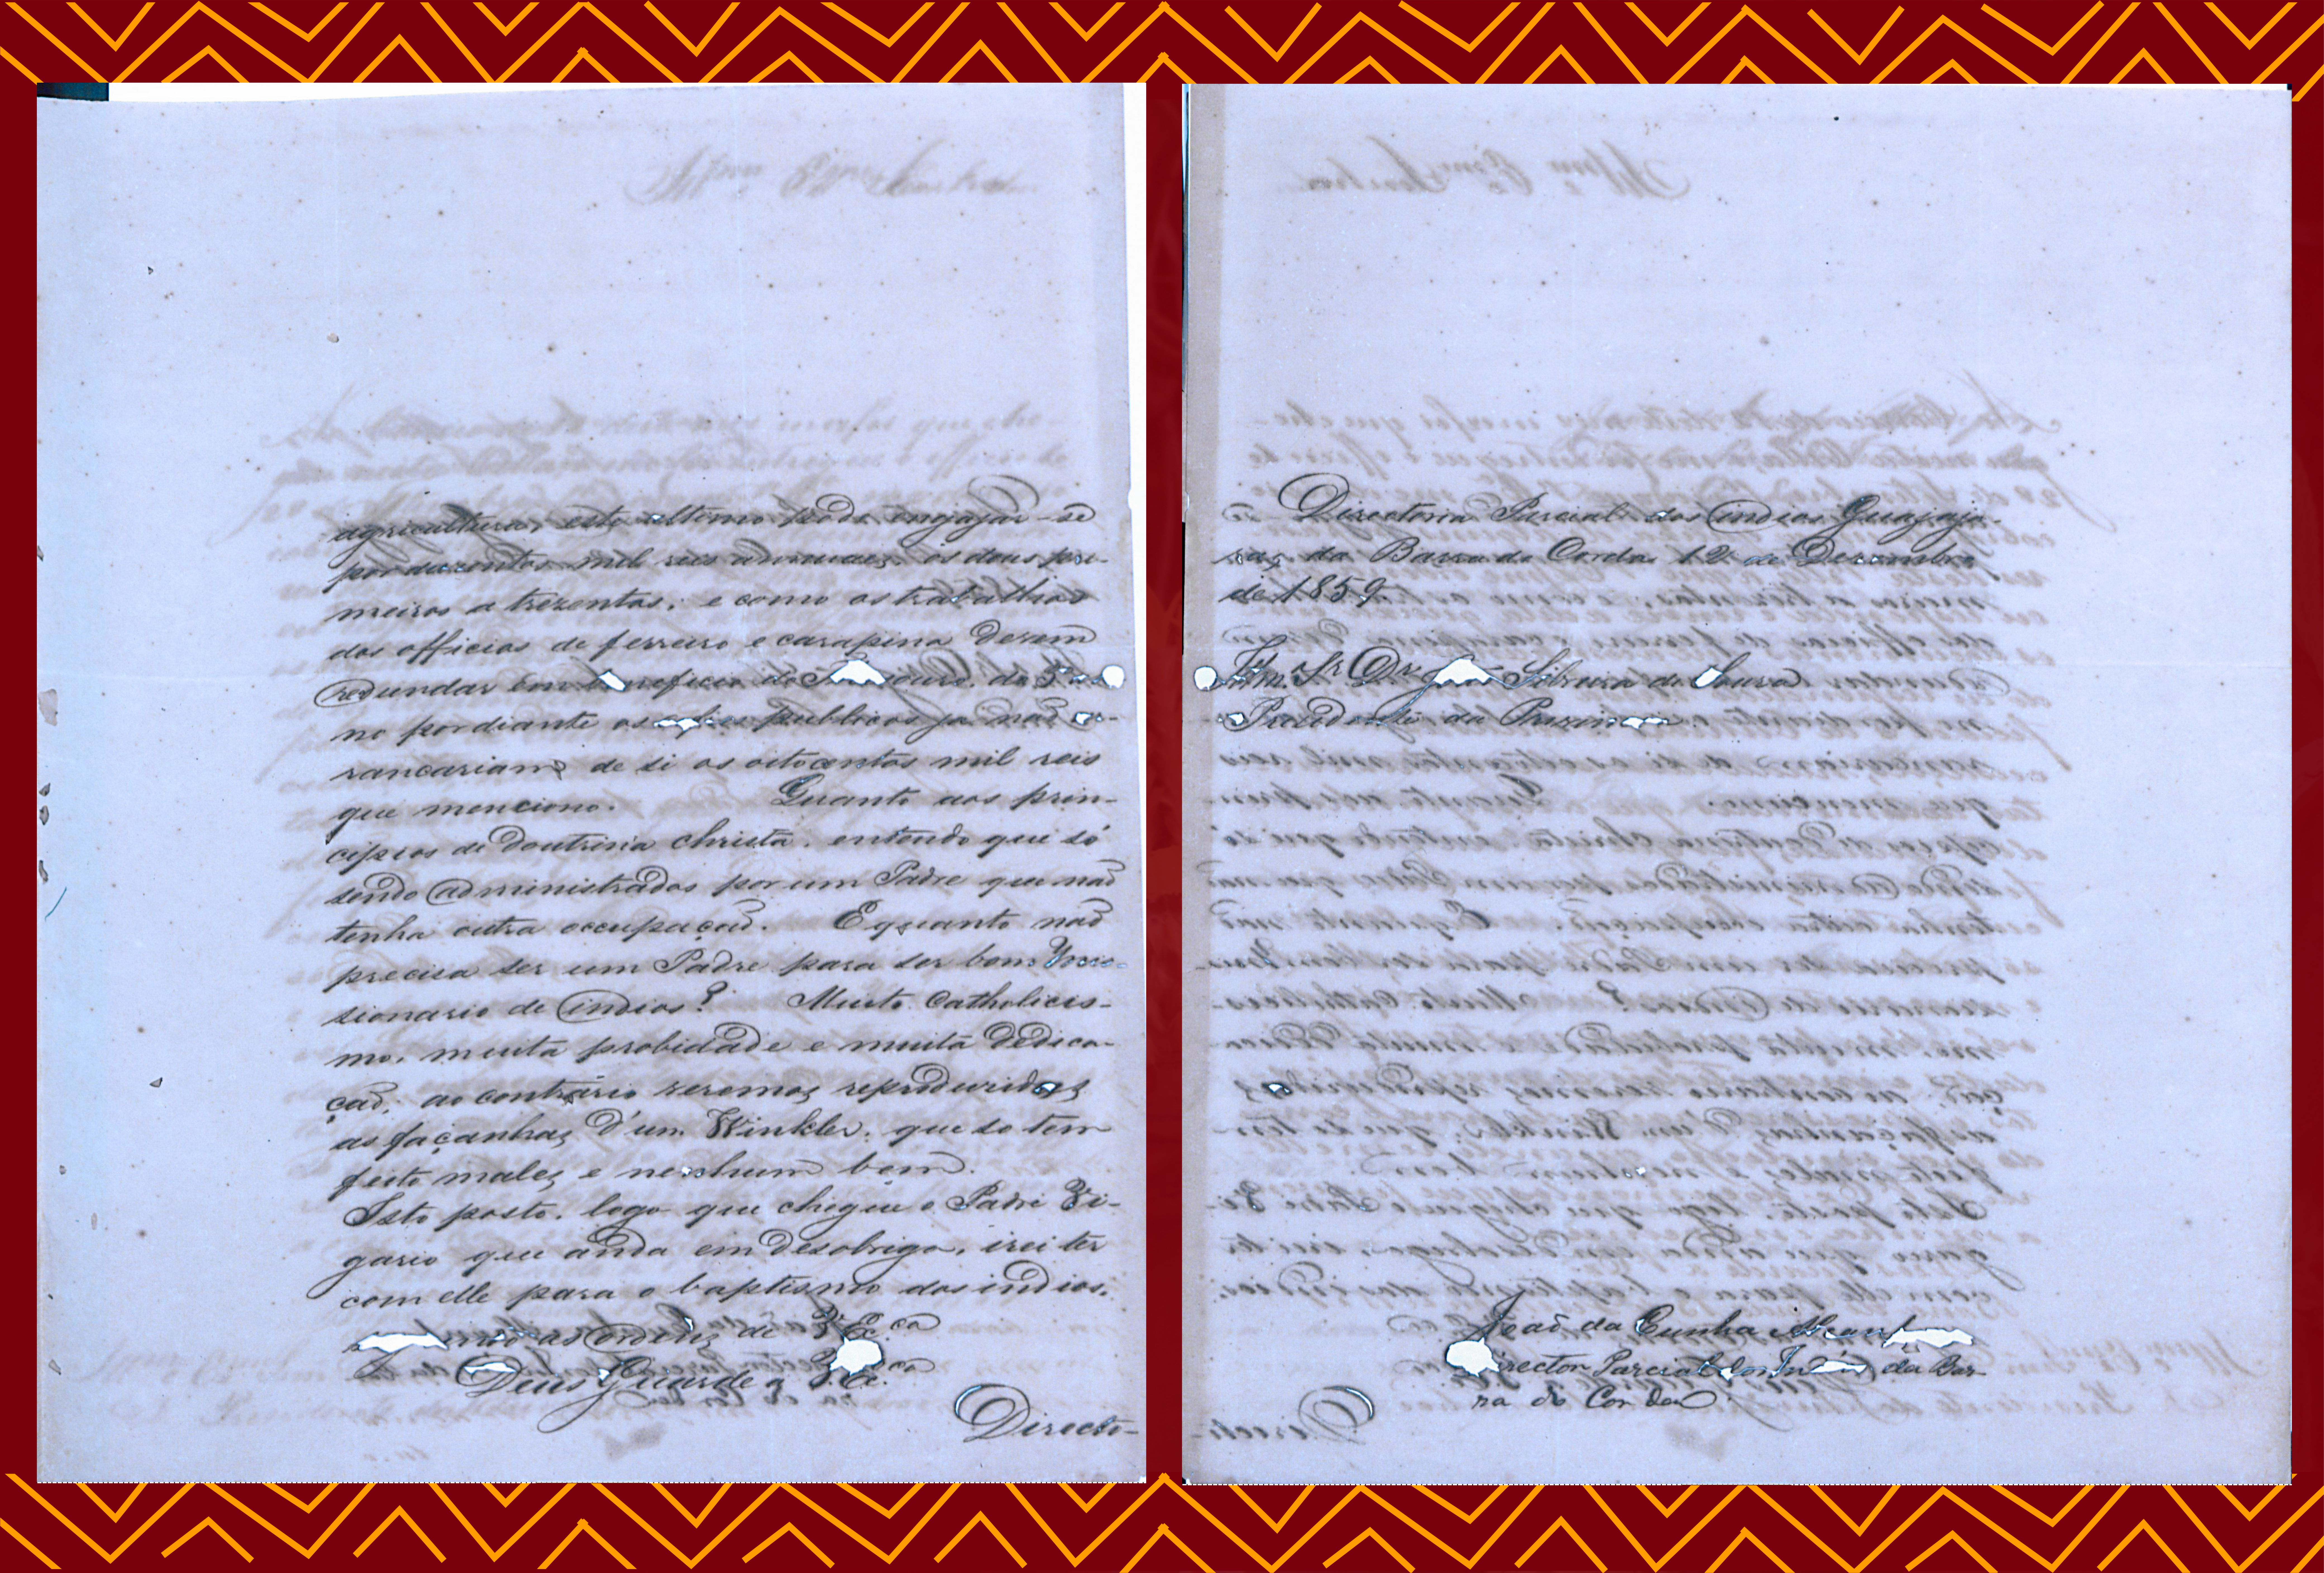 agricultura, este ultimo pode engajar-se
por duzentos mil reis annuaes, os dous pri-
meiros a trezentos; e como os trabalhos
dos officios de ferreiro e carapina devem
redundar em beneficio do
no por diante os publicos ja naõ
rancariam de si os oitocentos mil reis
que menciono. Quanto aos prin-
cipios de doutrina christã, entendo que só
sendo administrados por um Padre que naõ
tenha outra occupaçaõ. E quanto naõ
precisa ser um Padre para ser bom Mis-
sionario de indios? Muito Catholicis-
mo, muita probidade e muita dedica-
çaõ; ao contrario veremos reproduzidas
as façanhas d'um Winkler, que so tem
feito males e nenhum bem.
Isto posto, logo que chegue o Padre Vi-
gario que anda em desobriga, irei ter
com elle para o baptismo dos indios,
as ordens de V. Ex.ca
Deus Guarde a V. Ex.ca
Directo-
Directoria Parcial dos indios Guajaja-
ras da Barra do Corda 12 de Dezembro
de 1859
Illm. Sr. Dr. João Silveira de Souza
Presidente da
Joaõ da Cunha
Director Parcial dos da Bar-
ra do Corda